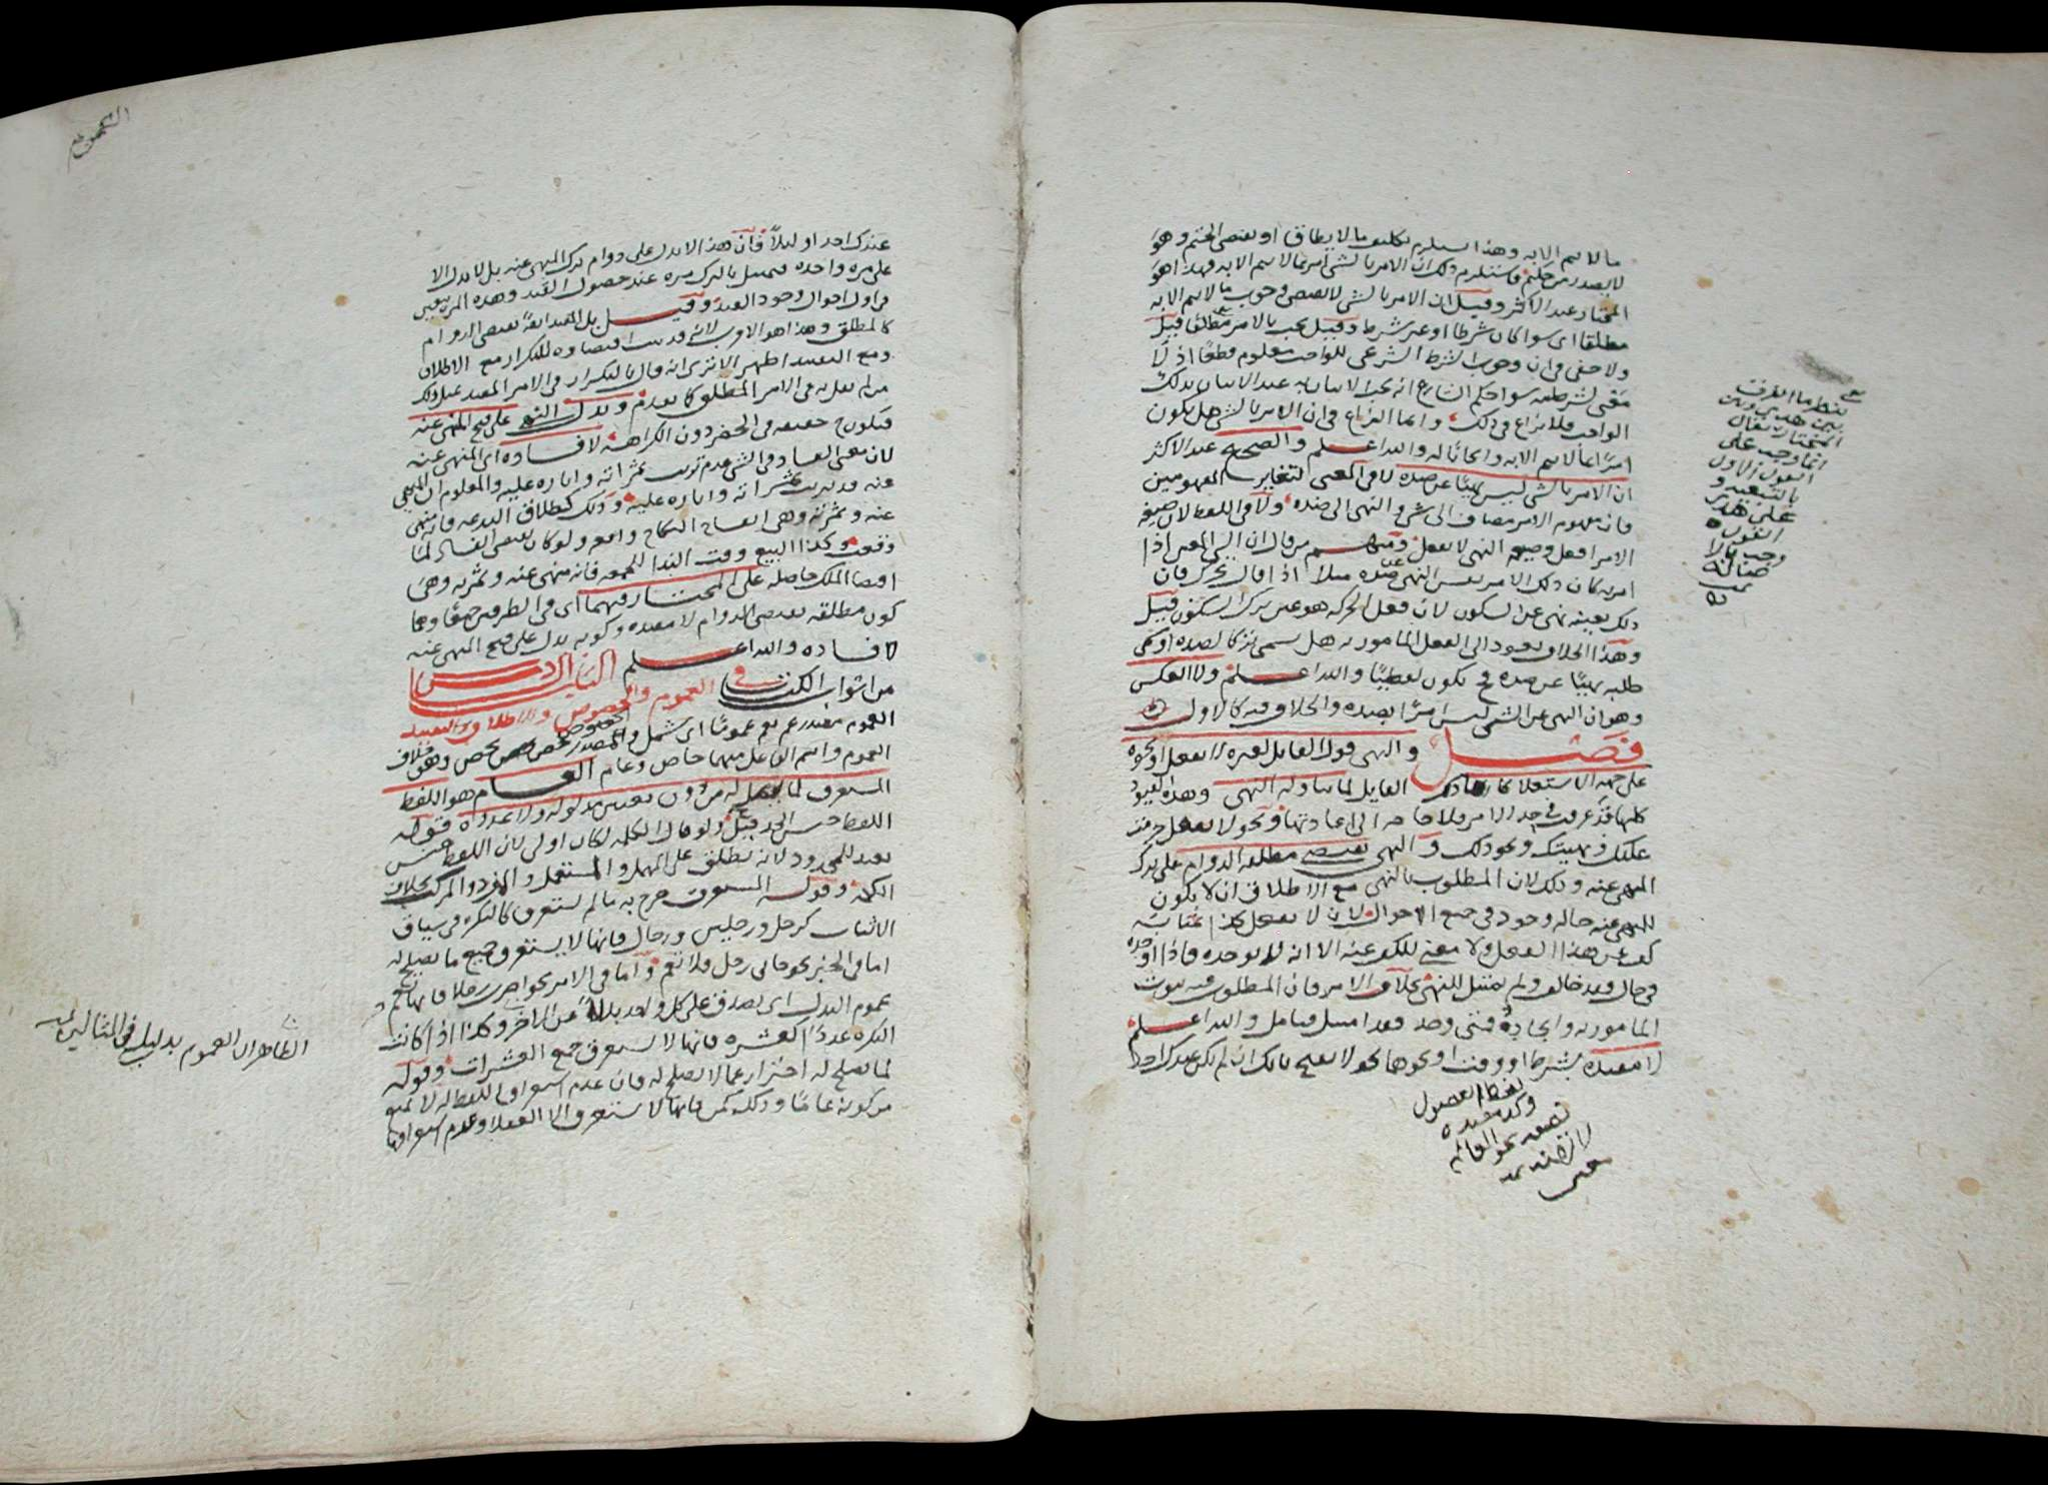 ما لا يتم الا به وهذا يستلزم تكليف ما لا يطاق او نقض الحتم وهو
لا يصدر من حكيم فاستلزم ذلك ان الامر بالشي امر بما لا يتم الا به وهذا هو
المختار عند الاكثر وقيل ان الامر بالشي لا يقتضي وجوب ما لا يتم الا به
مطلقا اي سوا كان شرطا او غير شرط وقيل يجب بالامر مطلقا قيل
ولا خفى في ان وجوب الشرط الشرعي للواجب معلوم قطعا اذ لا
معنى لشرطيته سوا حكم الشارع انه يجب الاتيان به عند الاتيان بذلك
الواجب فلا نزاع في ذلك وانما النزاع في ان الامر بالشي هل يكون
امرا بما لا يتم الا به وايجابا له والله اعلم والصحيح عند الاكثر
ان الامر بالشي ليس نهيا عن ضده لا في المعنى لتغاير المفهومين
فان مفهوم الامر مضاف الى شي والنهي الى ضده ولا في اللفظ لان صيغة
الامر افعل وصيغة النهي لا تفعل ومنهم من قال ان الشي المعين اذا
امر به كان ذلك الامر نفس النهي عن ضده مثلا اذا قال تحرك فان
ذلك بعينه نهي عن السكون لان فعل الحركة هو عين ترك السكون قيل
وهذا الخلاف يعود الى الفعل المامور به هل يسمى تركا لضده او في
طلبه نهيا عن ضده فيكون لفظيا والله اعلم ولا العكس
وهو ان النهي عن الشي ليس امرا بضده والخلاف فيه كالاول
فصل والنهي قول القايل لغيره لا تفعل او نحوه
على جهة الاستعلا كارها القايل لما تناوله النهي وهذه القيود
كلها قد عرفت في حد الامر فلا حاجة الى اعادتها ونحو لا تفعل حرمت
عليك ونهيتك ونحو ذلك والنهي يقتضي مطلقه الدوام على ترك
المنهي عنه وذلك لان المطلوب بالنهي مع الاطلاق ان لا يكون
للمنهي عنه حالة وجود في جميع الاحوال لان لا تفعل كذا بمثابة
كف عن هذا الفعل ولا معنى للكف عنه الا انه لا يوجده فاذا اوجده
في حال فقد خالف ولم يمتثل للنهي بخلاف الامر فان المطلوب فيه ثبوت
المامور به وايجاده فمتى وجد فقد امتثل فتامل والله اعلم
لا مقيده بشرط او وقت او نحوهما نحو لا تصح بابك ان لم يكن عندك احد
ينظر ما الفرق
بين هذين وبين
المختار يقال
انما وجب على
القول الاول
بالتبعية و
على هذين
القول
وجب بالا
صالة
تمت
لفظ الفصول
وكذ مقيده
بصفة نحو القايم
لا تضربه
عند احد او ليلا فان هذا لا يدل على دوام ترك المنهي عنه بل لا يدل الا
على مرة واحدة فيمتثل بالترك مرة عند حصول القيد وهذه المرة تتعين
في اول احوال وجود القيد وقيل بل المقيد ايضا يقتضي الدوام
كالمطلق وهذا هو الاقرب لانه قد ثبت اقتضاوه للتكرار مع الاطلاق
ومع التقييد اظهر الا ترى انه قال بالتكرار في الامر المقيد
من لم يقل به في الامر المطلق كما تقدم ويدل النهي على قبح المنهي عنه
فيكون حقيقة في الحظر دون الكراهة لا فساده اي المنهي عنه
لان معنى الفساد في الشي عدم ترتب ثمراته واثاره عليه والمعلوم ان المنهي
عنه قد ترتب ثمراته واثاره عليه وذلك كطلاق البدعة فانه منهي
عنه وثمرته وهي انفساخ النكاح واقعة ولو كان يقتضي الفساد لما
وقعت وكذا البيع وقت الندا للجمعة فانه منهي عنه وثمرته وهي
اقتضا الملك حاصلة على المختار فيهما اي في الطرفين جميعا وهما
كون مطلقه يقتضي الدوام لا مقيده وكونه يدل على قبح المنهي عنه
لا فساده والله اعلم الباب السادس
من ابواب الكتاب في العموم والخصوص والاطلاق والتقييد
العموم مصدر عم يعم عموما اي شمل والخصوص مصدر خص يخص وهو خلاف
العموم واسم الفاعل منهما خاص وعام العام هو اللفظ
المستغرق لما يصلح له من دون تعيين مدلوله ولا عدده فقوله
اللفظ جنس الحد قيل ولو قال الكلمة لكان اولى لان اللفظ جنس
بعيد للمحدود لانه يطلق على المهمل والمستعمل والمفرد والمركب بخلاف
الكلمة وقوله المستغرق خرج به ما لم يستغرق كالنكرة في سياق
الاثبات كرجل ورجلين ورجال فانها لا تستغرق جميع ما تصلح له
اما في الخبر نحو جاني رجل فلا تعم واما في الامر نحو اضرب رجلا فانها تعم
عموم البدل اي تصدق على كل واحد بدلا عن الاخر وكذا اذا كانت
النكرة عددا كعشرة فانها لا تستغرق جميع العشرات وقوله
لما يصلح له احتراز عما لا يصلح له فان عدم استغراق اللفظ له لا يمنع
من كونه عاما وذلك كمن فانها لا تستغرق الا العقلا وعدم استغراقها
الظاهر ان العموم بدليل في المثالين